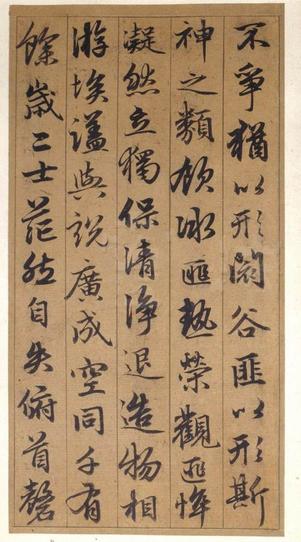 不爭猶以形谷匪以形斯
神之類飲冰匪熱榮觀匪
凝然立獨保清淨退造物相
游埃與說廣成空同千有
餘歲二士茫然自失俯首磬